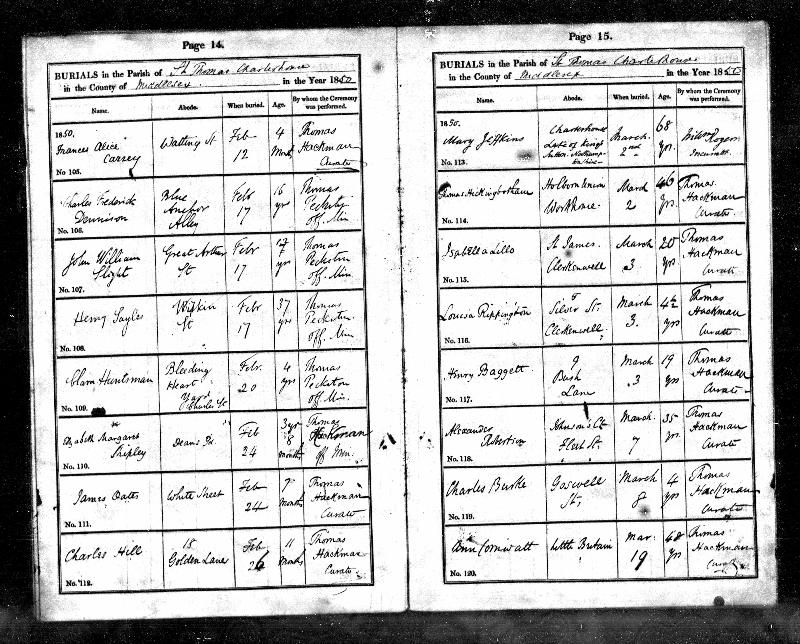 Page 14.
BURIALS in the Parish of St Thomas Charterhouse
in the County of Middlesex in the Year 1850
Name. Abode. When buried. Age. By whom the Ceremony was performed.
1850.
Frances Alice Watling St Feb 4 Thomas
Carvey 12 Month Hackman
No 105. Curate
Charles Frederick Blue Feb 16 Thomas
Dennison Anchor 17 yr Peckston
No. 106. Alley off. Min.
John William Great Arthur Feb 17 Thomas
Slight St 17 yr Peckston
No. 107. off. Min.
Henry Sayles Feb 37 Thomas
St 17 yrs Peckston
No. 108. off. Min
Clara Huntsman Bleeding Feb. 4 Thomas
Heart 20 yrs Peckston
No. 109. Yard Charles St off Min.
Elizabeth Margaret Deans Feb 3 yr Thomas
Shipley 24 8 Hackman
No. 110. months off Min.
James Oates White Street Feb 7 Thomas
24 Months Hackman
No. 111. Curate
Charles Hill 18 Feb 11 Thomas
Golden Lane 26 Months Hackman
No. 112. Curate
Page 15.
BURIALS in the Parish of St Thomas Charterhouse
in the County of Middlesex in the Year 1850
Name. Abode. When buried. Age. By whom the Ceremony was performed.
1850.
Mary Jeffkins Charterhouse March 68 William
Late of Kings 2nd yrs. Rogers
No. 113. Sutton Incumbt.
Thomas Holborn Union March 46 Thomas
Workhouse 2 Yrs. Hackman
No. 114. Curate
Isabella Lillo St James. March 20 Thomas
Clerkenwell 3 yrs Hackman
No. 115. Curate
Louisa Rippington Silver St. March 42 Thomas
Clerkenwell 3. yrs Hackman
No. 116. Curate
Henry Baggett 9 March 19 Thomas
Bush 3 yrs Hackman
No. 117. Lane Curate
Alexander Johnsons Ct March. 35 Thomas
Robertson Fleet St. 7 yrs. Hackman
No. 118. Curate
Charles Burke Goswell March 4 Thomas
St, 8 yrs Hackman
No. 119. Curate
Ann Cornwall Little Britain Mar. 68 Thomas
19 yrs Hackman
No. 120. Curate